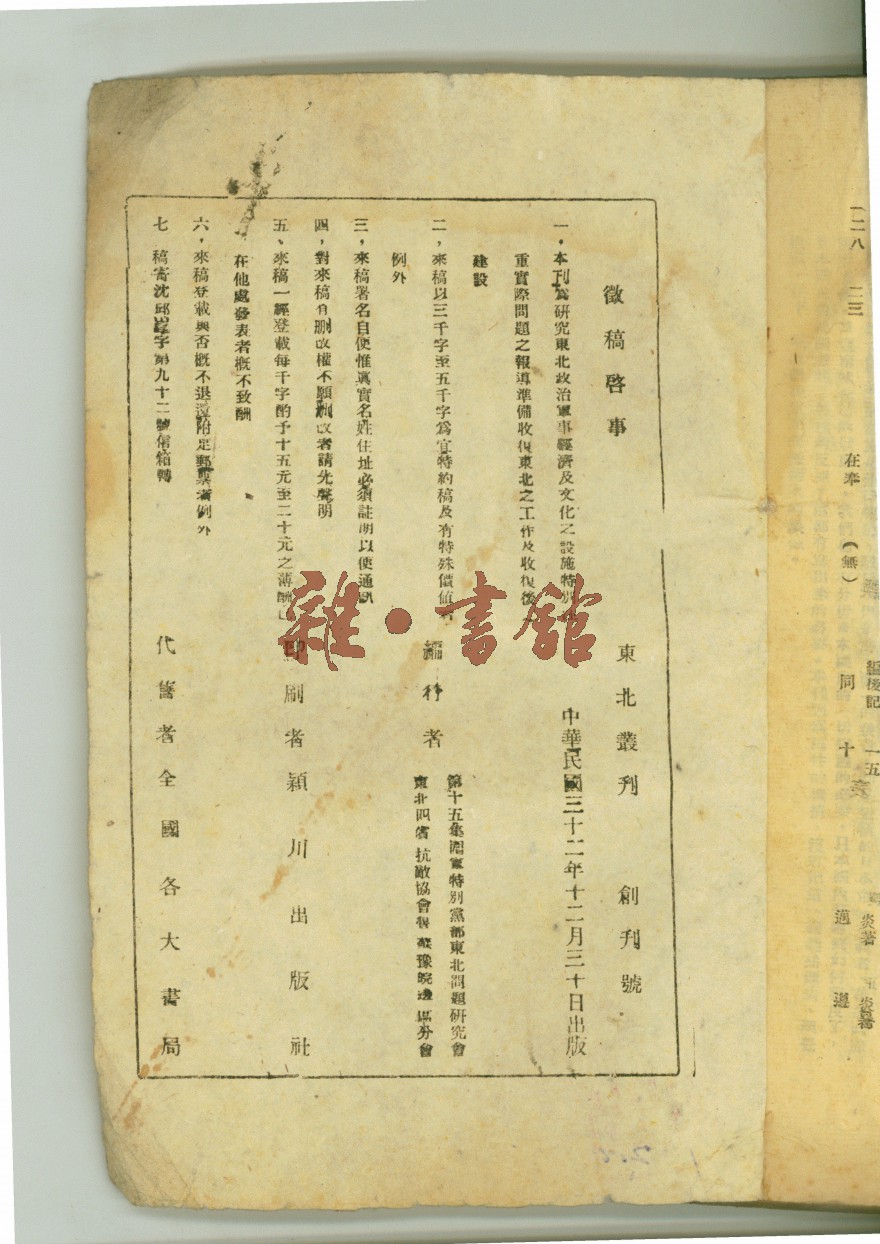 徵稿啓事
一，本刊爲研究東北政治軍事經濟及文化之設施特別
重實際問題之報導準備收復東北之工作及收復後
建設
二，來稿以三千字至五千字爲宜特約稿及有特殊價值
例外
三，來稿署名自便惟眞實名姓住址必須註明以便通訊
四，對來稿有删改權不願删改者請先聲明
五、來稿一經登載每千字酌予十五元至二十元之薄酬
在他處發表者概不致酬
六，來稿登載與否概不退還附足郵票者例外
七 稿寄沈邱字第九十二號信箱轉
東北叢刊 創刊號
中華民國三十二年十二月三十日出版
編行者
第十五集團軍特別黨部東北問題研究會
東北四省抗敵協會豫皖邊區分會
印刷者潁川出版社
代售者全國各大書局
雜·書館
編後記 一五
在奉 (無) 同 十
二八 二三
炎著